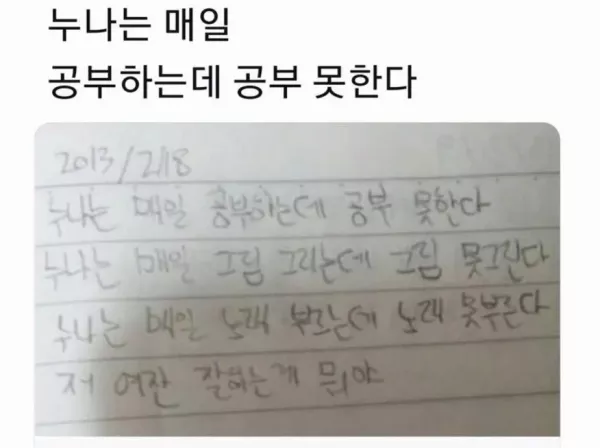 누나는 매일
공부하는데 공부 못한다
2013/2/18
누나는 매일 공부하는데 공부 못한다
누나는 매일 그림 그리는데 그림 못그린다
누나는 매일 노래 부르는데 노래 못부른다
저 여잔 잘하는게 뭐야